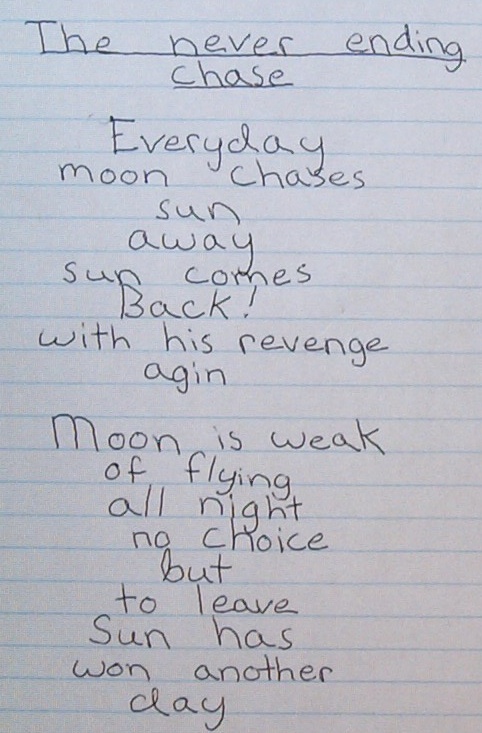 The never ending
chase
Everyday
moon chases
sun
away
sun comes
Back!
with his revenge
agin
Moon is weak
of flying
all night
no choice
but
to leave
Sun has
won another
day